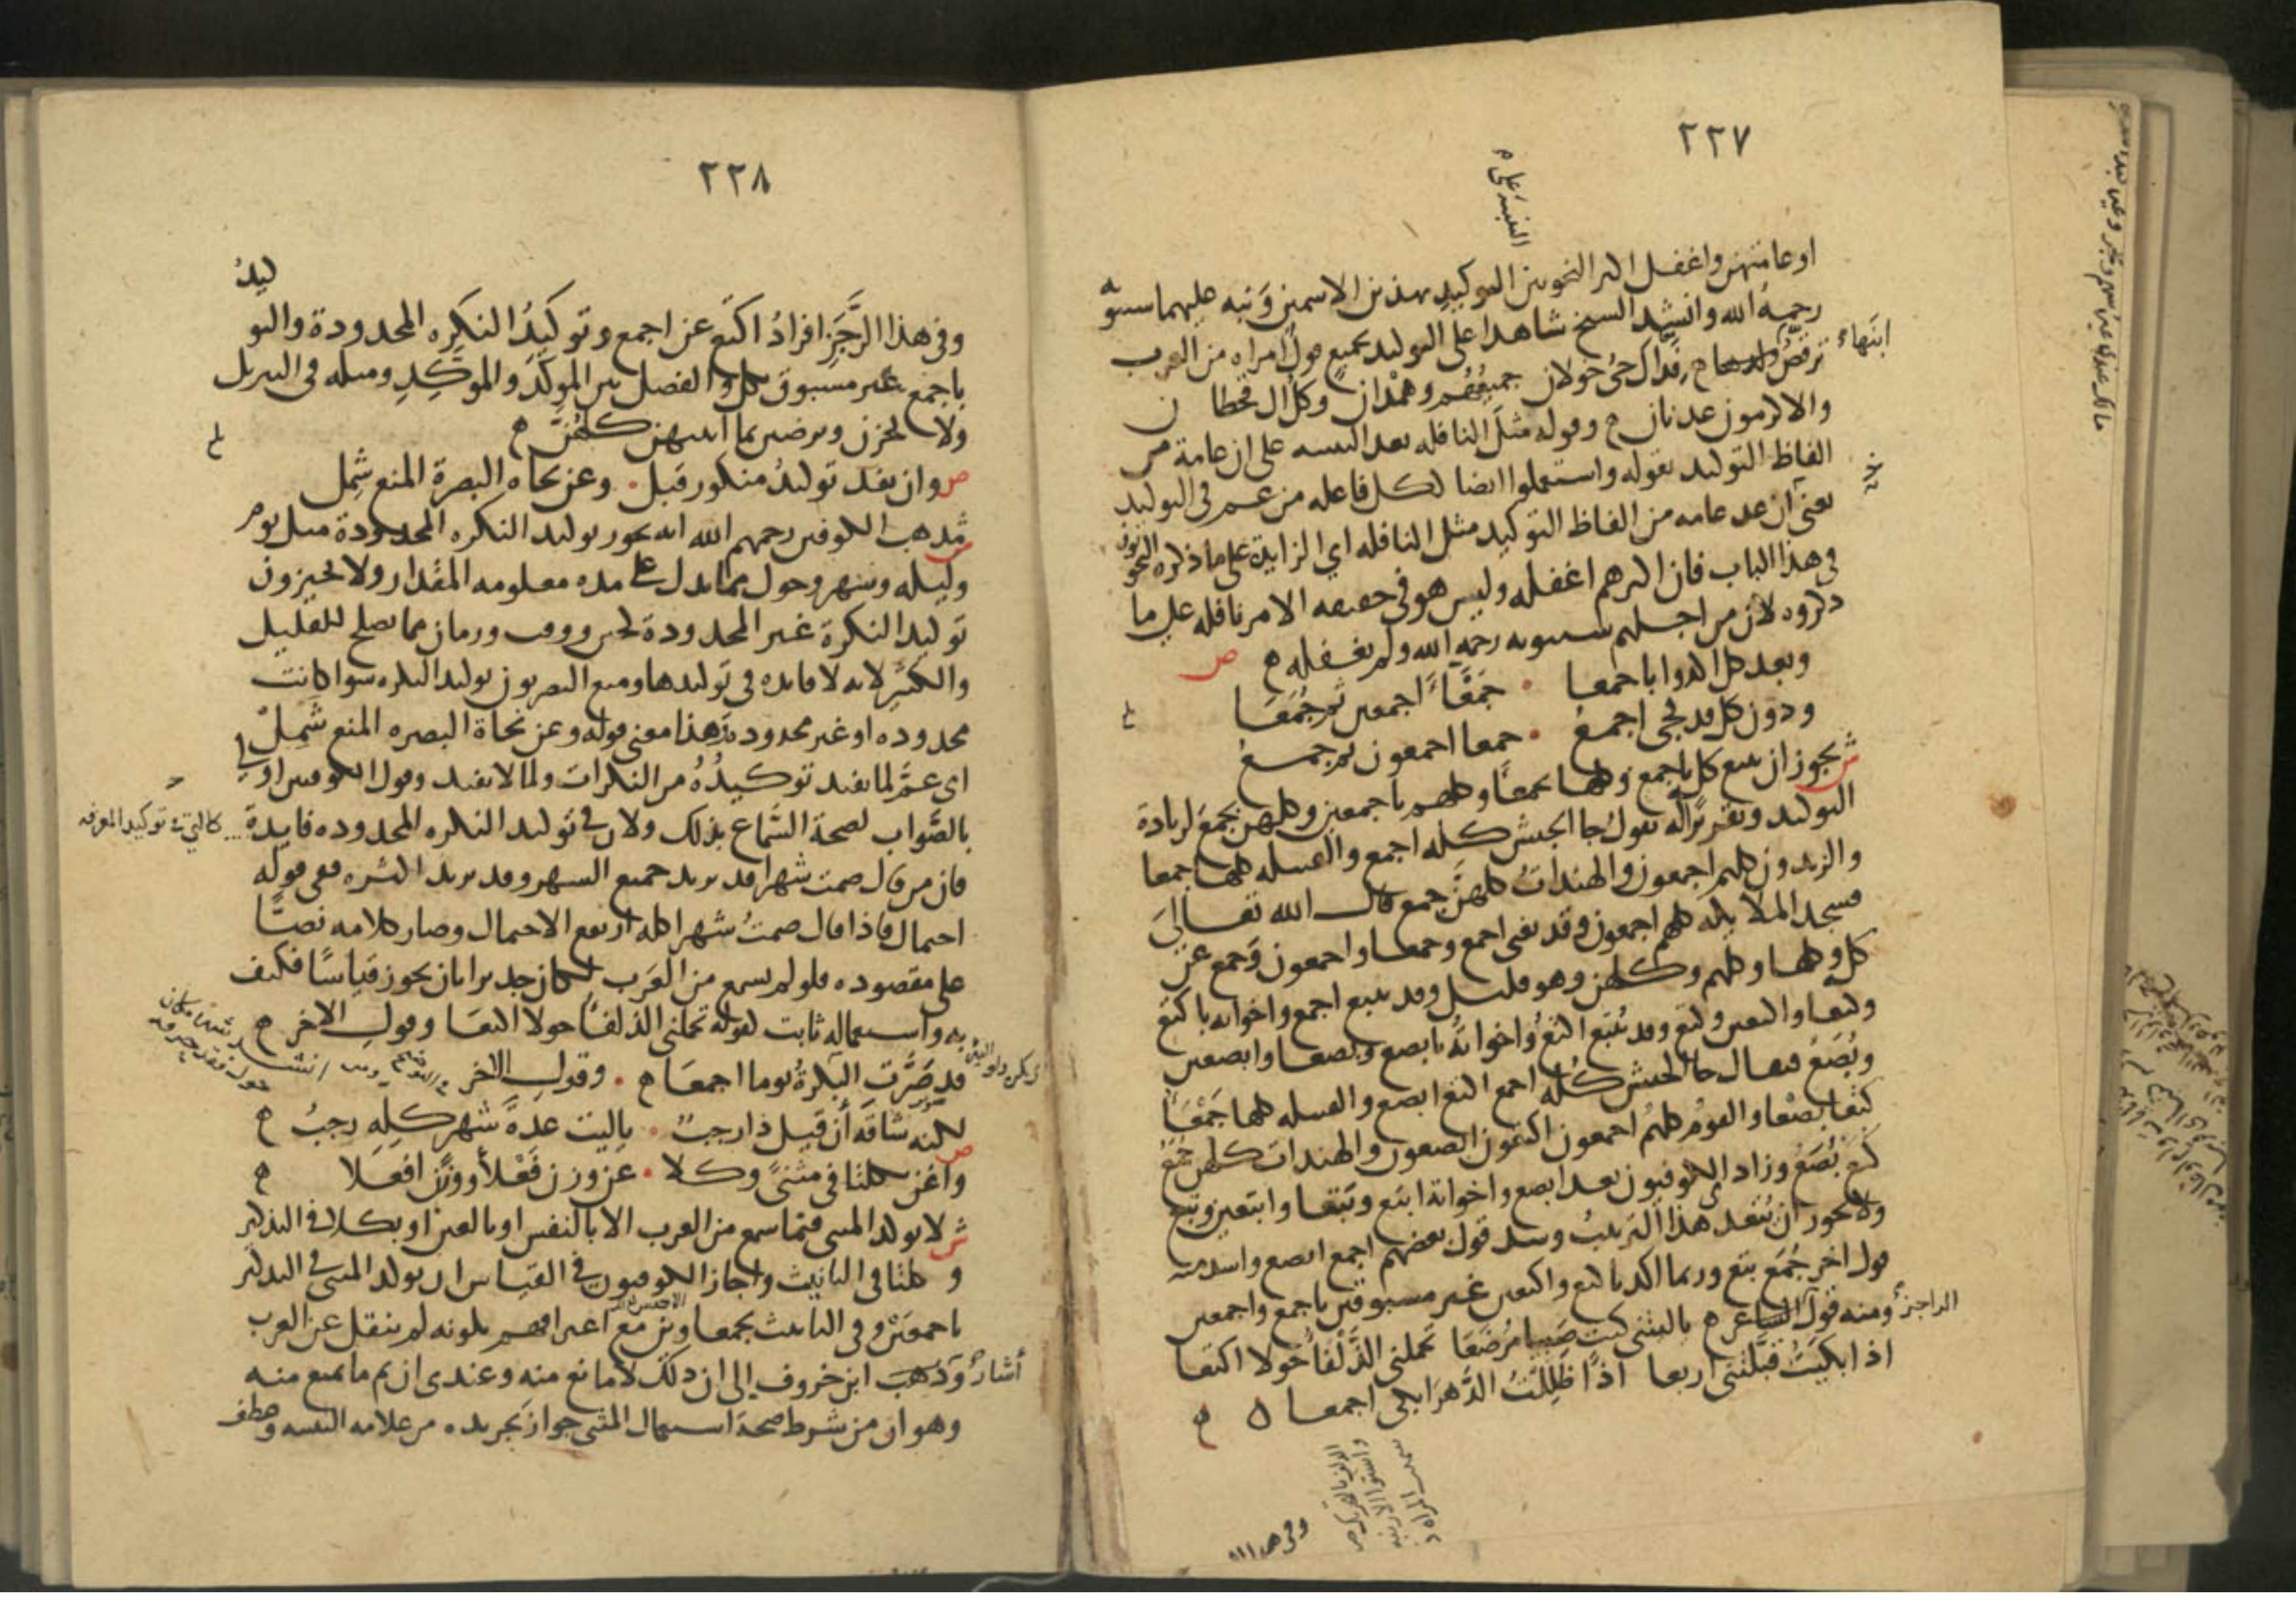 ٢٢٧
او عامتهن واغفل اكثر النحويين التوكيد بهذين الاسمين ونبه عليهما سيبويه
رحمه الله وانشد الشيخ شاهدا على التوكيد بجميع قول امراة من العرب
ترقص ابنها فداك حي خولان جميعهم وهمدان وكل ال قحطان
والاكرمون عدنان وقوله مثل النافله بعد التنبيه على ان عامة من
الفاظ التوكيد بقوله واستعملوا ايضا ككل فاعله من عم في التوكيد
يعني ان عد عامه من الفاظ التوكيد مثل النافله اي الزايدة على ما ذكره النحويون
في هذا الباب فان اكثرهم اغفله وليس هو في حقيقه الامر نافله على ما
ذكروه لان من اجلهم سيبويه رحمه الله ولم يغفله ص
وبعد كل اكدوا باجمعا جمعاء اجمعين ثم جمعا
ودون كل قد يجي اجمع جمعا اجمعون ثم جمع
ش يجوز ان يتبع كل باجمع وكلها بجمعا وكلهم باجمعين وكلهن بجمع لزيادة
التوكيد وتقريره تقول جا الجيش كله اجمع والقبيله كلها جمعا
والزيدون كلهم اجمعون والهندات كلهن جمع قال الله تعالى
فسجد الملائكة كلهم اجمعون وقد يغني اجمع وجمعا واجمعون وجمع عن
كله وكلها وكلهم وكلهن وهو قليل وقد يتبع اجمع واخواته باكتع
وكتعا واكتعين وكتع وقد يتبع اكتع واخواته بابصع وبصعا وابصعين
وبصع فيقال جا الجيش كله اجمع اكتع ابصع والقبيله كلها جمعا
كتعا بصعا والقوم كلهم اجمعون اكتعون ابصعون والهندات كلهن جمع
كتع بصع وزاد الكوفيون بعد ابصع واخواته ابتع وبتعا وابتعين وبتع
ولا يجوز ان يتعدى هذا الترتيب وشذ قول بعضهم اجمع ابصع واشد منه
قول اخر جمع بتع وربما اكد باكتع واكتعين غير مسبوقين باجمع واجمعين
ومنه قول الراجز يا ليتني كنت صبيا مرضعا تحملني الذلفا حولا اكتعا
اذا بكيت قبلتني اربعا اذا ظللت الدهر ابكي اجمعا
٢٢٨
وفي هذا الرجز افراد اكتع عن اجمع وتوكيد النكره المحدودة والتوكيد
باجمع غير مسبوق بكل والفصل بين الموكد والموكد ومثله في التنزيل
ولا يحزن ويرضين بما اتيتهن كلهن
ص وان يفد توكيد منكور قبل وعن نحاه البصرة المنع شمل
ش مذهب الكوفيين رحمهم الله انه يجوز توكيد النكره المحدودة مثل يوم
وليله وشهر وحول مما يدل على مده معلومه المقدار ولا يجيزون
توكيد النكرة غير المحدودة كحين ووقت وزمان مما يصلح للقليل
والكثير لانه لا فايده في توكيدها ومنع البصريون توكيد النكره سوا كانت
محدوده او غير محدوده وهذا معنى قوله وعن نحاة البصره المنع شمل
اي عم لما يفيد توكيده من النكرات ولما لا يفيد وقول الكوفيين اولى
بالصواب لصحة السماع بذلك ولان في توكيد النكره المحدوده فايدة كالتي في توكيد المعرفه
فان من قال صمت شهرا قد يريد جميع الشهر وقد يريد اكثره ففي قوله
احتمال فاذا قال صمت شهرا كله ارتفع الاحتمال وصار كلامه نصا
على مقصوده فلو لم يسمع من العرب لكان جديرا بان يجوز قياسا فكيف
به واستعماله ثابت كقوله تحملني الذلفا حولا اكتعا وقول الاخر
قد صرت البكرة يوما اجمعا وقول الاخر
لكنه شاقه أن قيل ذا رجب يا ليت عدة شهر كله رجب
ص واغن بكلتا في مثنى وكلا عن وزن فعلاء ووزن افعلا
ش لا يوكد المثنى فيما سمع من العرب الا بالنفس او بالعين او بكلا في التذكير
وكلتا في التانيث واجاز الكوفيون في القياس ان يوكد المثنى في التذكير
باجمعين وفي التانيث بجمعاوين مع اعترافهم بكونه لم ينقل عن العرب
أشار ابن خروف إلى ان ذلك لا مانع منه وعندي ان ثم ما يمنع منه
وهو ان من شرط صحة استعمال المثنى جواز تجريده من علامه التثنيه وعطف